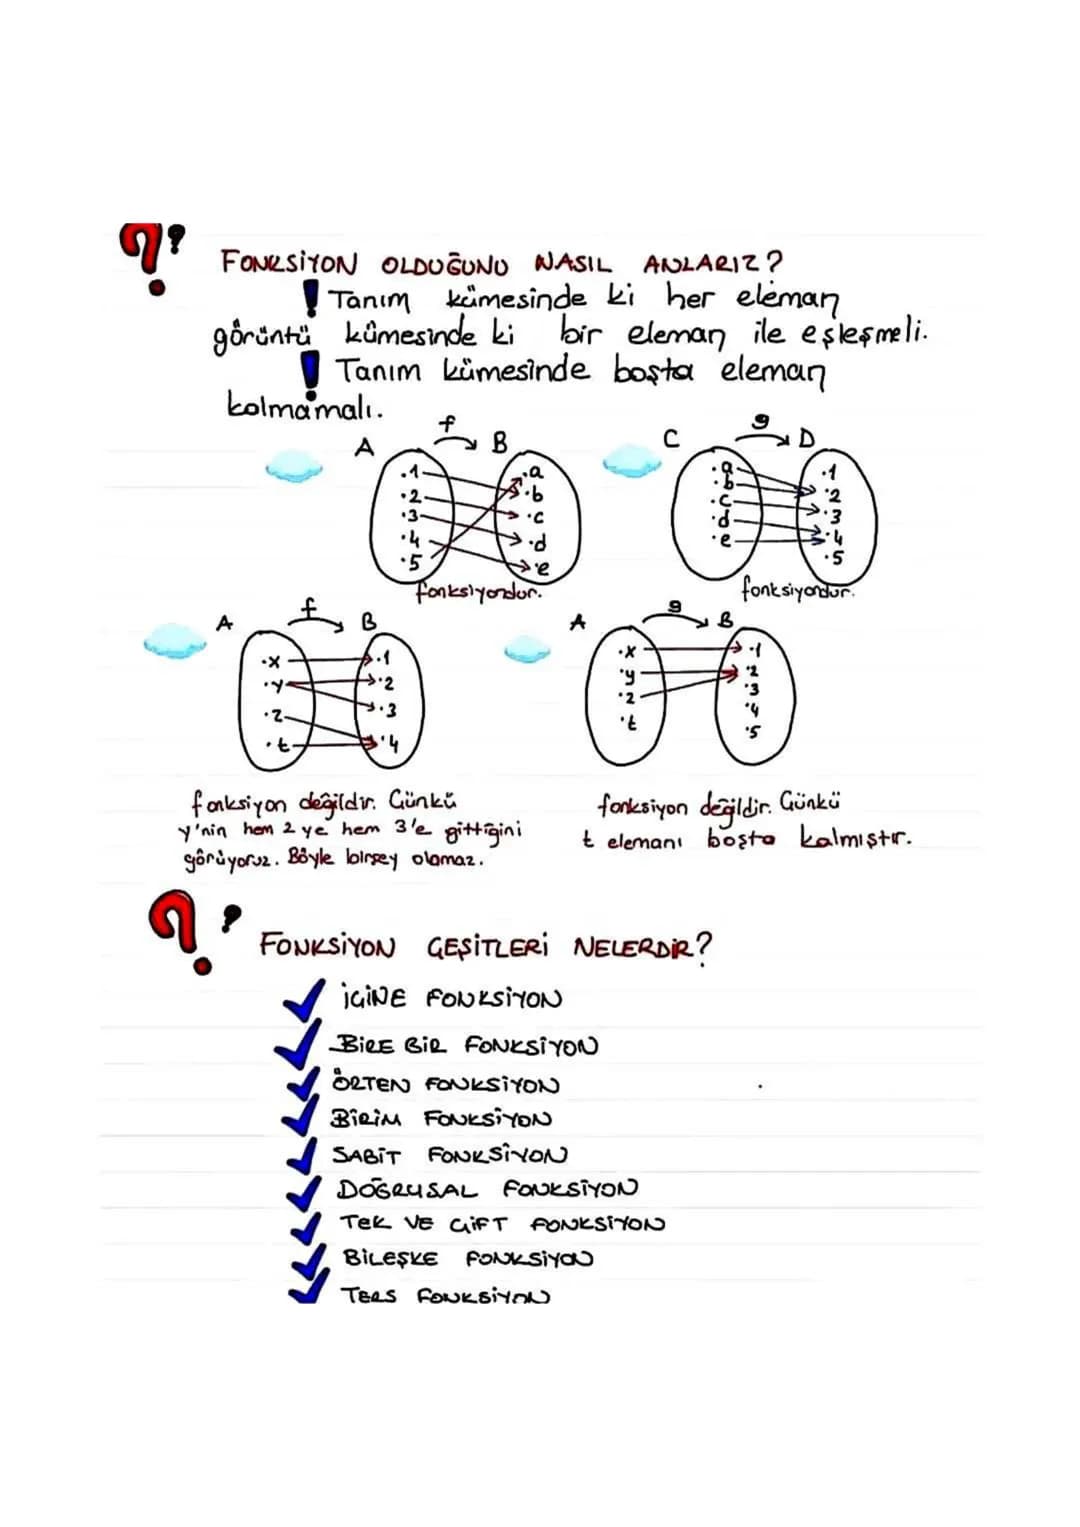 FONKSİYON OLDUĞUNU NASIL ANLARIZ?
! Tanım kümesinde ki her eleman
görüntü kümesinde ki bir eleman ile eşleşmeli.
! Tanım kümesinde boşta eleman
kalmamalı.
A f B
.1 .a
.2 .b
.3 .c
.4 .d
.5 .e
fonksiyondur.
C g D
.a .1
.b .2
.c .3
.d .4
.e .5
fonksiyondur.
A f B
.x .1
.y .2
.z .3
.t .4
fonksiyon değildir. Çünkü
y'nin hem 2 ye hem 3'e gittiğini
görüyoruz. Böyle birşey olamaz.
A g B
.x .1
.y .2
.z .3
.t .4
.5
fonksiyon değildir. Çünkü
t elemanı boşta kalmıştır.
FONKSİYON ÇEŞİTLERİ NELERDİR?
İÇİNE FONKSİYON
BİRE BİR FONKSİYON
ÖRTEN FONKSİYON
BİRİM FONKSİYON
SABİT FONKSİYON
DOĞRUSAL FONKSİYON
TEK VE ÇİFT FONKSİYON
BİLEŞKE FONKSİYON
TERS FONKSİYON